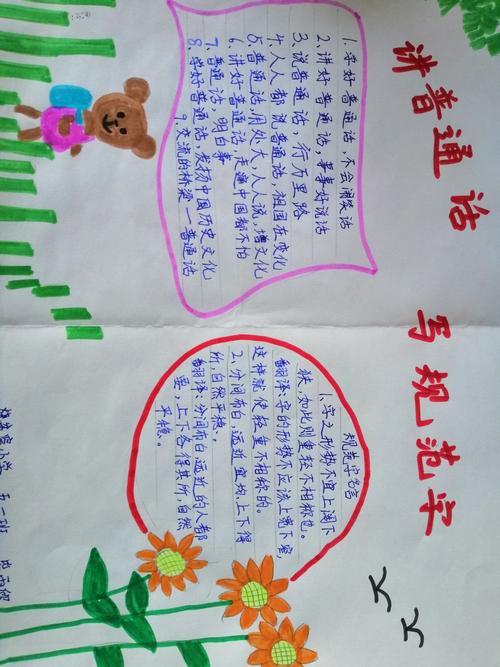 讲普通话 写规范字
1. 学好普通话,不会闹笑话
2. 讲好普通话,事事好说话
3. 说普通话,行万里路
4. 人人都说普通话,祖国在变化
5. 普通话用处大,人人说,增文化
6. 讲好普通话,走遍中国都不怕
7. 普通话,明白事
8. 学好普通话,发扬中国历史文化
9. 交流的桥梁——普通话
规范字名言
1. 字之形势不宜上阔下
狭,如此则重轻不相称也。
翻译:字的形势不应该上宽下窄,
这样就使轻重不相称的。
2、分间布白,远近宜均,上下得
所,自然平稳。
翻译:分间布白远近的人都
要,上下各得其所,自然
平稳。
小学 五二班